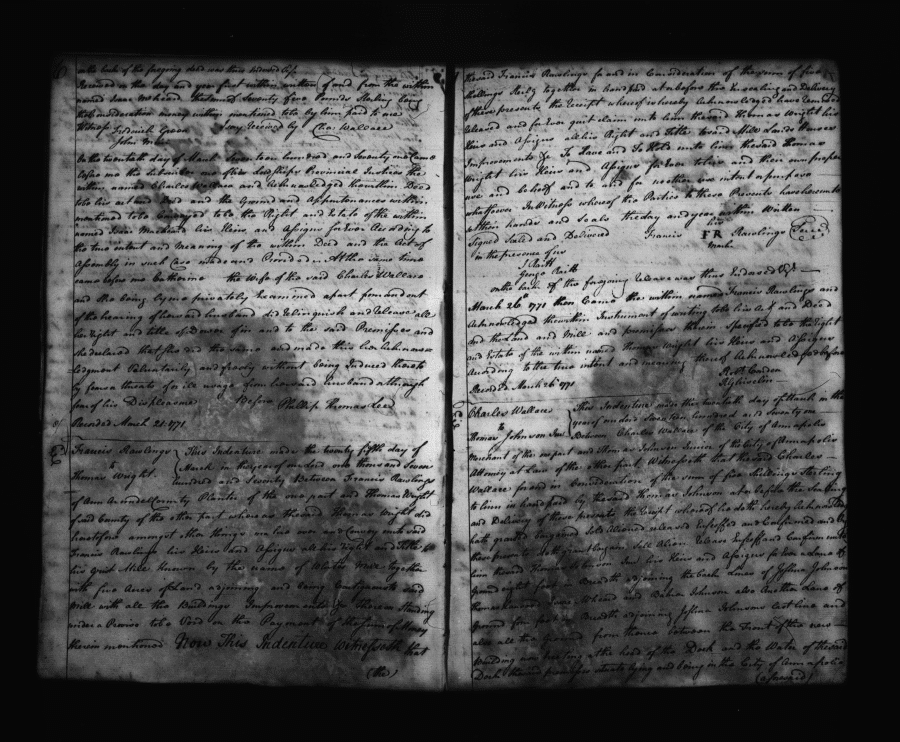 on the back of the foregoing deed was thus Indorsed Viz
Received on the day and year first within written of and from the within
named Isaac McHard the sum of Seventy five Pounds Sterling being
the Consideration money within mentioned to be by him paid to me
Witness Fredrick Green pray received by Cha. Wallace
John
On the twentieth day of March Seventeen hundred and Seventy one Came
before me the Subscriber one of his Lordships Provincial Justices the
within named Charles Wallace and acknowledged the within Deed
to be his act and Deed and the Ground and Appurtenances within
mentioned to be conveyed to be the Right and Estate of the within
named Isaac McHard his Heirs and Assigns for Ever According to
the true intent and Meaning of the within Deed and the Act of
Assembly in such Case made and Provided. At the same time
came before me Catherine the Wife of the said Charles Wallace
and She being by me privately Examined apart from and out
of the hearing of her said husband did Relinquish and Release all
her Right and title of Dower of in and to the said Premisses and
She declared that She did the same and made this her Acknow
ledgment Voluntarily and freely without being Induced thereto
by fears or threats of or ill usage from her said husband or through
fear of his Displeasure Before Phillip Thomas Lee
Recorded March 21. 1771
Francis Rawlings This Indenture made the twenty fifth day of
to March in the year of our Lord one thousand Seven
Thomas Wright hundred and Seventy Between Francis Rawlings
of Ann Arundel County Planter of the one part and Thomas Wright
of said County of the other part whereas the said Thomas Wright did
heretofore amongst other things make over and Convey unto said
Francis Rawlings his Heirs and Assigns all his right and Title to
his Grist Mill Known by the name of Mill together
with five Acres of Land adjoining and being Contiguous to said
Mill with all the Buildings Improvements &c thereon Standing
under a Proviso to be Void on the Payment of the sum of Money
therein mentioned Now This Indenture Witnesseth that
(the)
the said Francis Rawlings for and in Consideration of the sum of five
shillings Sterlg together in hand paid at or before the Ensealing and Delivery
of these presents the Receipt whereof is hereby Acknowledged have Remised
Released and for Ever quit claim unto him the said Thomas Wright his
Heirs and Assigns all his Right and Title to said Mill Lands Houses
Improvements &c To Have and To Hold unto him the said Thomas
Wright his Heirs and Assigns for Ever to his and their own proper
use and behoof and to and for no other use intent or purpose
whatsoever In Witness whereof the Parties to these Presents have hereunto
set their hands and Seals the day and year within Written
his
Signed Sealed and Delivered Francis FR Rawlings (Seal)
in the presence of us mark
J Raitt
George Raitt
on the back of the foregoing Release was thus Endorsed Viz
March 26th 1771 then Came the within named Francis Rawlings and
Acknowledged the within Instrument of writing to be his Act and Deed
and the Land and Mill and premisses therein Specified to be the Right
and Estate of the within named Thomas Wright his Heirs and Assigns
According to the true intent and meaning thereof Acknowledged before
Recorded March 26 1771
Charles Wallace This Indenture made this twentieth day of March in the
to year of our Lord Seventeen hundred and Seventy one
Thomas Johnson Jun Between Charles Wallace of the City of Annapolis
Merchant of the one part and Thomas Johnson Junior of the City of Annapolis
Attorney at Law of the other part Witnesseth that the said Charles
Wallace for and in Consideration of the sum of five Shillings Sterling
to him in hand paid by the said Thomas Johnson at or before the Sealing
and Delivery of these presents the Receipt whereof he doth hereby Acknowledge
hath granted bargained Sold Aliened released Enfeoffed and Confirmed and by
these presents doth grant bargain Sell Alien Release Enfeoff and Confirm unto
him the said Thomas Johnson Jun his Heirs and Assigns
ground eight feet in Breadth adjoining the back Lines of Joshua Johnson
Thomas Isaac McHard and Johnson also Another Lane of
ground four feet in Breadth adjoining Joshua Johnsons East line and
also all the ground from thence between the Front of the
building now at the head of the Dock and the Water of the said
Dock the said premisses situate lying and being in the City of Annapolis
(aforesaid)